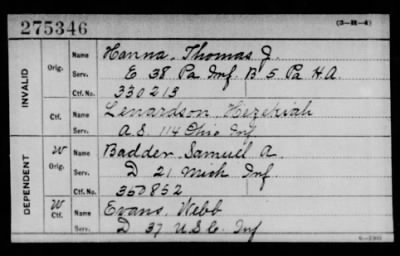 275346
(3-H-4)
INVALID
Orig. Name Hanna, Thomas J.
Serv. E 38 Pa Inf. B 5 Pa H.A.
Ctf. No. 330213
Ctf. Name Lenardson, Hezekiah
Serv. A.E. 114 Ohio Inf
DEPENDENT
W Orig. Name Badder, Samuel A.
Serv. D 21 Mich Inf.
Ctf. No. 350852
W Ctf. Name Evans, Webb
Serv. D 37 U.S.C. Inf